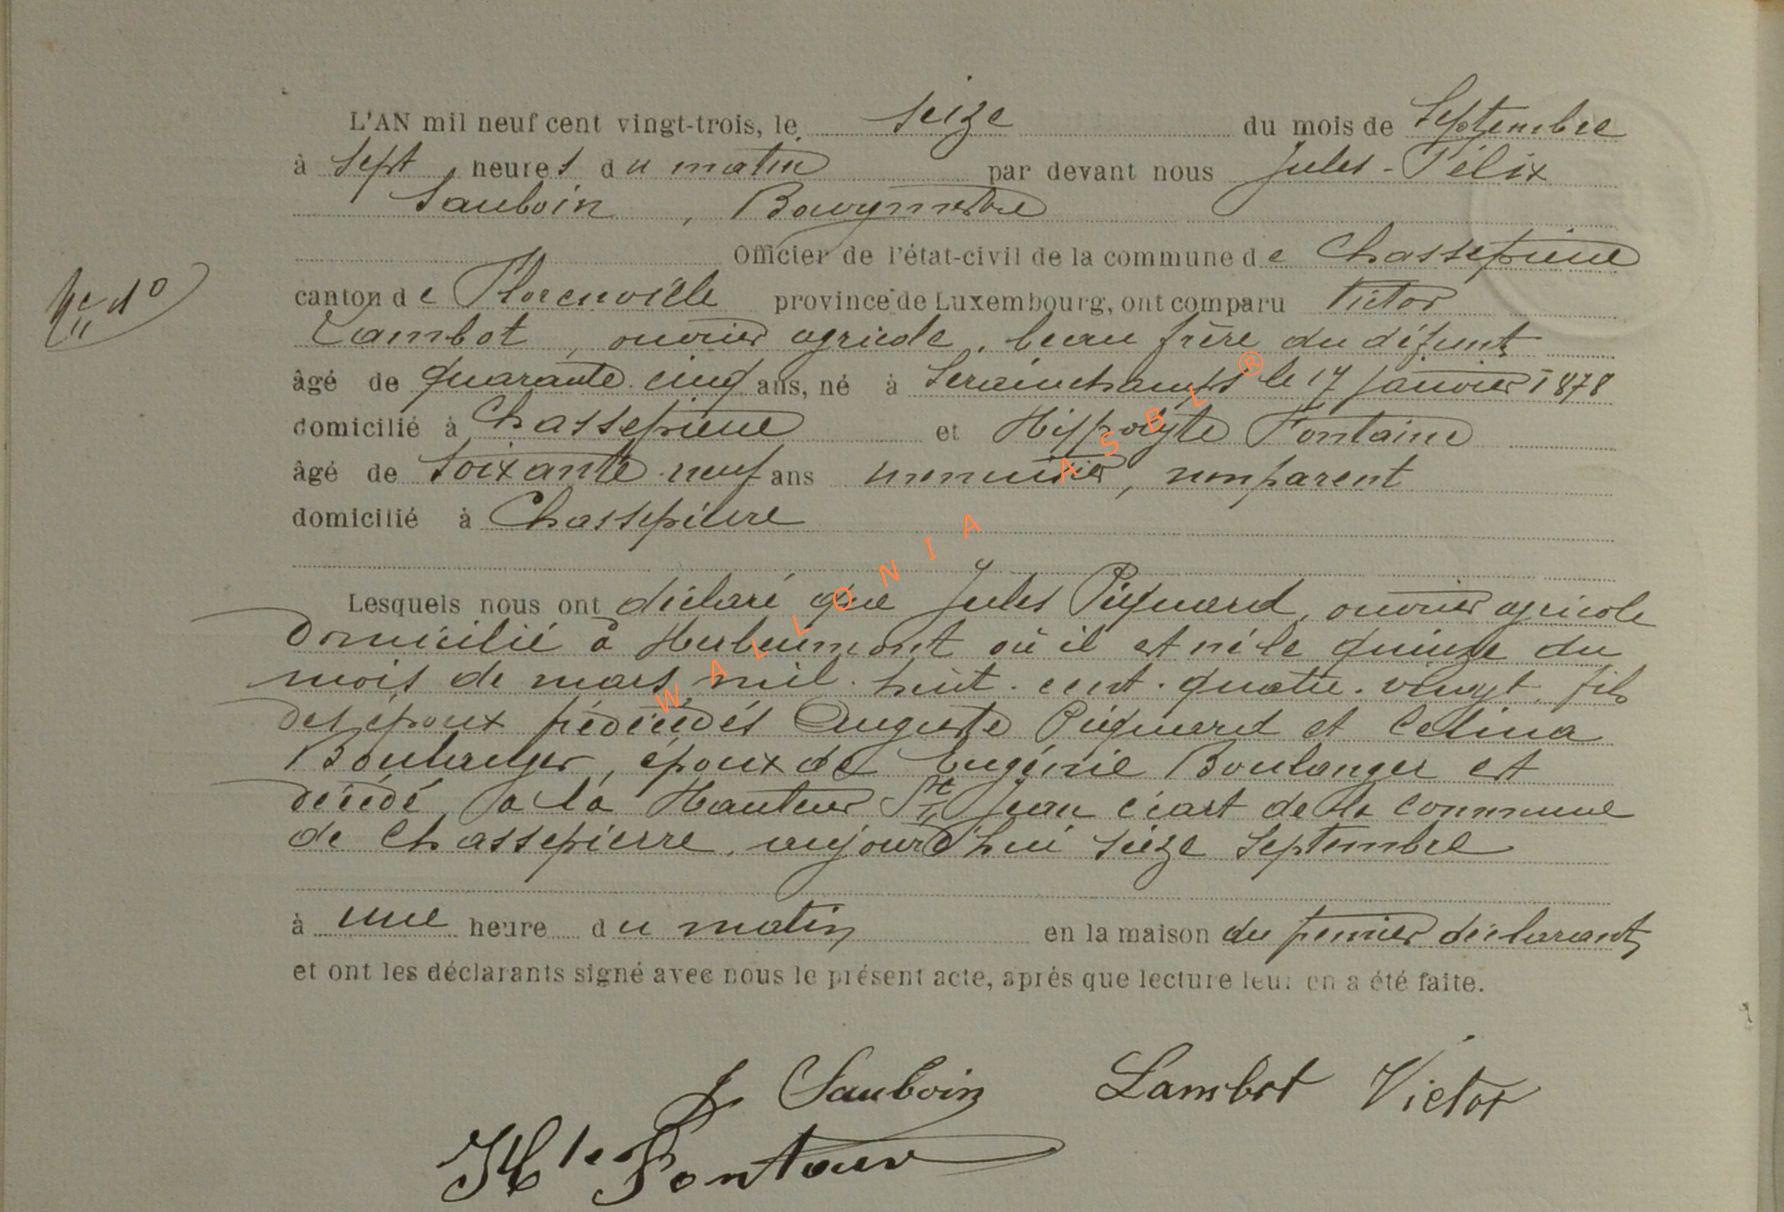 L'AN mil neuf cent vingt-trois, le seize du mois de Septembre
à sept heures du matin par devant nous Jules-Félix
Sauboin, Bourgmestre
Officier de l'état-civil de la commune de Chassepierre
canton de Florenville province de Luxembourg, ont comparu Victor
Lambot, ouvrier agricole, beau frère du défunt
âgé de quarante cinq ans, né à Serainchamps le 17 janvier 1878
domicilié à Chassepierre et Hippolyte Fontaine
âgé de soixante neuf ans menuisier, non parent
domicilié à Chassepierre
Lesquels nous ont déclaré que Jules Piquard, ouvrier agricole
domicilié à Herbeumont où il est né le quinze du
mois de mars mil huit cent quatre vingt fils
des époux prédécédés Auguste Piquard et Celina
Boulanger, époux de Eugénie Boulanger est
décédé à la Hauteur St Jean écart de la commune
de Chassepierre, aujourd'hui seize Septembre
à une heure du matin en la maison du premier déclarant
et ont les déclarants signé avec nous le présent acte, après que lecture leur en a été faite.
J Sauboin Lambot Victor
Hte Fontaine
WALLONIA ASBL ®